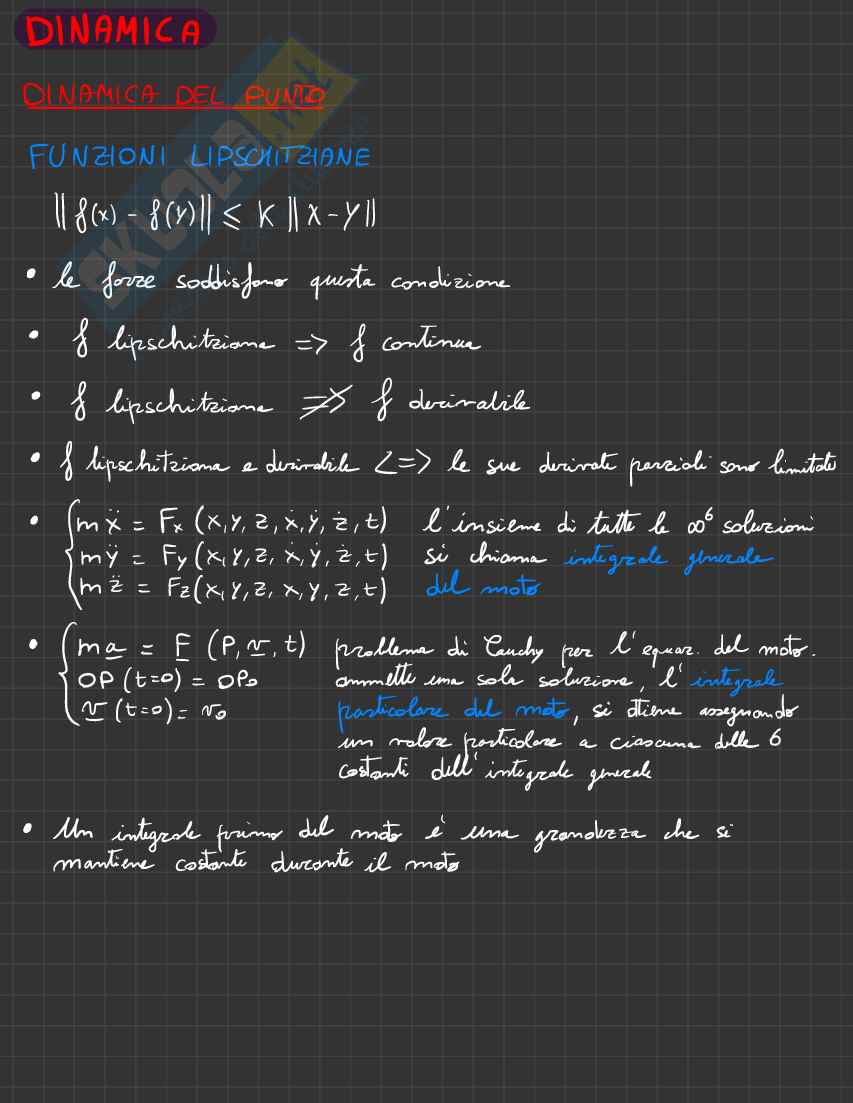 DINAMICA
DINAMICA DEL PUNTO
FUNZIONI LIPSCHITZIANE
||f(x) - f(y)|| ≤ K ||x-y||
• le forze soddisfano questa condizione
• f lipschitziana => f continua
• f lipschitziana ≠> f derivabile
• f lipschitziana e derivabile <=> le sue derivate parziali sono limitate
• { mẍ = Fx (x,y,z,ẋ,ẏ,ż,t) l'insieme di tutte le ∞⁶ soluzioni
mÿ = Fy (x,y,z,ẋ,ẏ,ż,t) si chiama integrale generale
mz̈ = Fz (x,y,z,x,y,z,t) del moto
• { ma = F (P,v,t) problema di Cauchy per l'equaz. del moto.
OP (t=0) = OP₀ ammette una sola soluzione, l'integrale
v (t=0) = v₀ particolare del moto, si ottiene assegnando
un valore particolare a ciascuna delle 6
costanti dell'integrale generale
• Un integrale primo del moto é una grandezza che si
mantiene costante durante il moto
SKUOLA.net